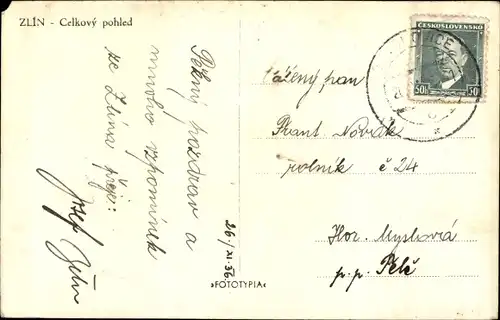 ZLÍN - Celkový pohled
Pěkný pozdrav a
mnoho vzpomínek
ze Zlína přeje:
Josef
26./XI. 36
»FOTOTYPIA«
ČESKOSLOVENSKO
50h 50h
Vážený pan
Frant. Novák
rolník č 24
Hor. Myslová
p. p. Telč